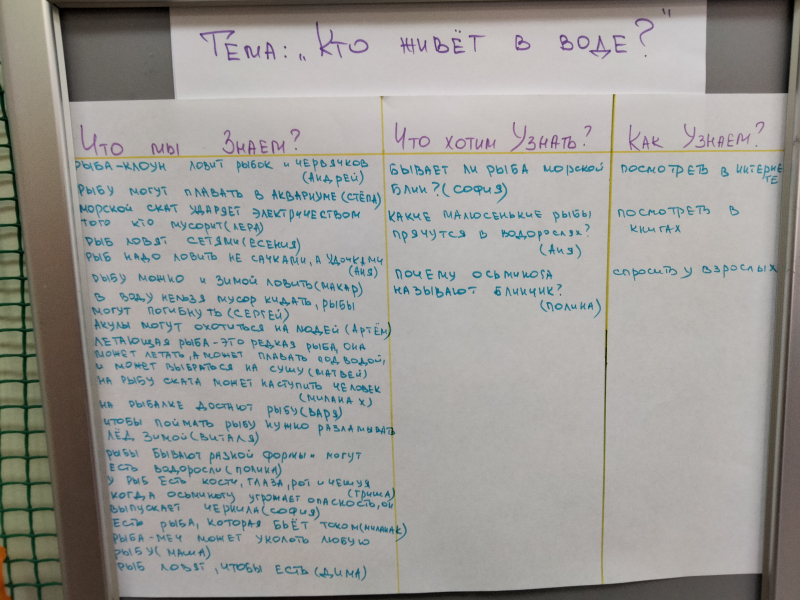 Тема: „Кто живёт в воде?"
Что мы Знаем?
Рыба-клоун ловит рыбок и червячков
(Андрей)
Рыбу могут плавать в аквариуме (Стёпа)
Морской скат ударяет электричеством
того кто мусорит (Лера)
Рыб ловят сетями (Есения)
Рыб надо ловить не сачками, а удочками
(Аня)
Рыбу можно и зимой ловить (Макар)
В воду нельзя мусор кидать, рыбы
могут погибнуть (Сергей)
Акулы могут охотиться на людей (Артём)
Летающая рыба-это редкая рыба, она
может летать, а может плавать под водой,
и может выбраться на сушу (Матвей)
На рыбу ската может наступить человек
(Милана Х)
На рыбалке достают рыбу (Варя)
Чтобы поймать рыбу нужно разламывать
лёд зимой (Виталя)
Рыбы бывают разной формы и могут
есть водоросли (Полина)
У рыб есть кости, глаза, рот и чешуя
(Гриша)
Когда осьминогу угрожает опасность, он
выпускает чернила (София)
Есть рыба, которая бьёт током (Милана К)
Рыба-меч может уколоть любую
рыбу (Маша)
Рыб ловят, чтобы есть (Дима)
Что хотим Узнать?
Бывает ли рыба морской
блин? (София)
Какие малюсенькие рыбы
прячутся в водорослях?
(Аня)
Почему осьминога
называют блинчик?
(Полина)
Как Узнаем?
Посмотреть в интерне
те
Посмотреть в
книгах
Спросить у взрослых